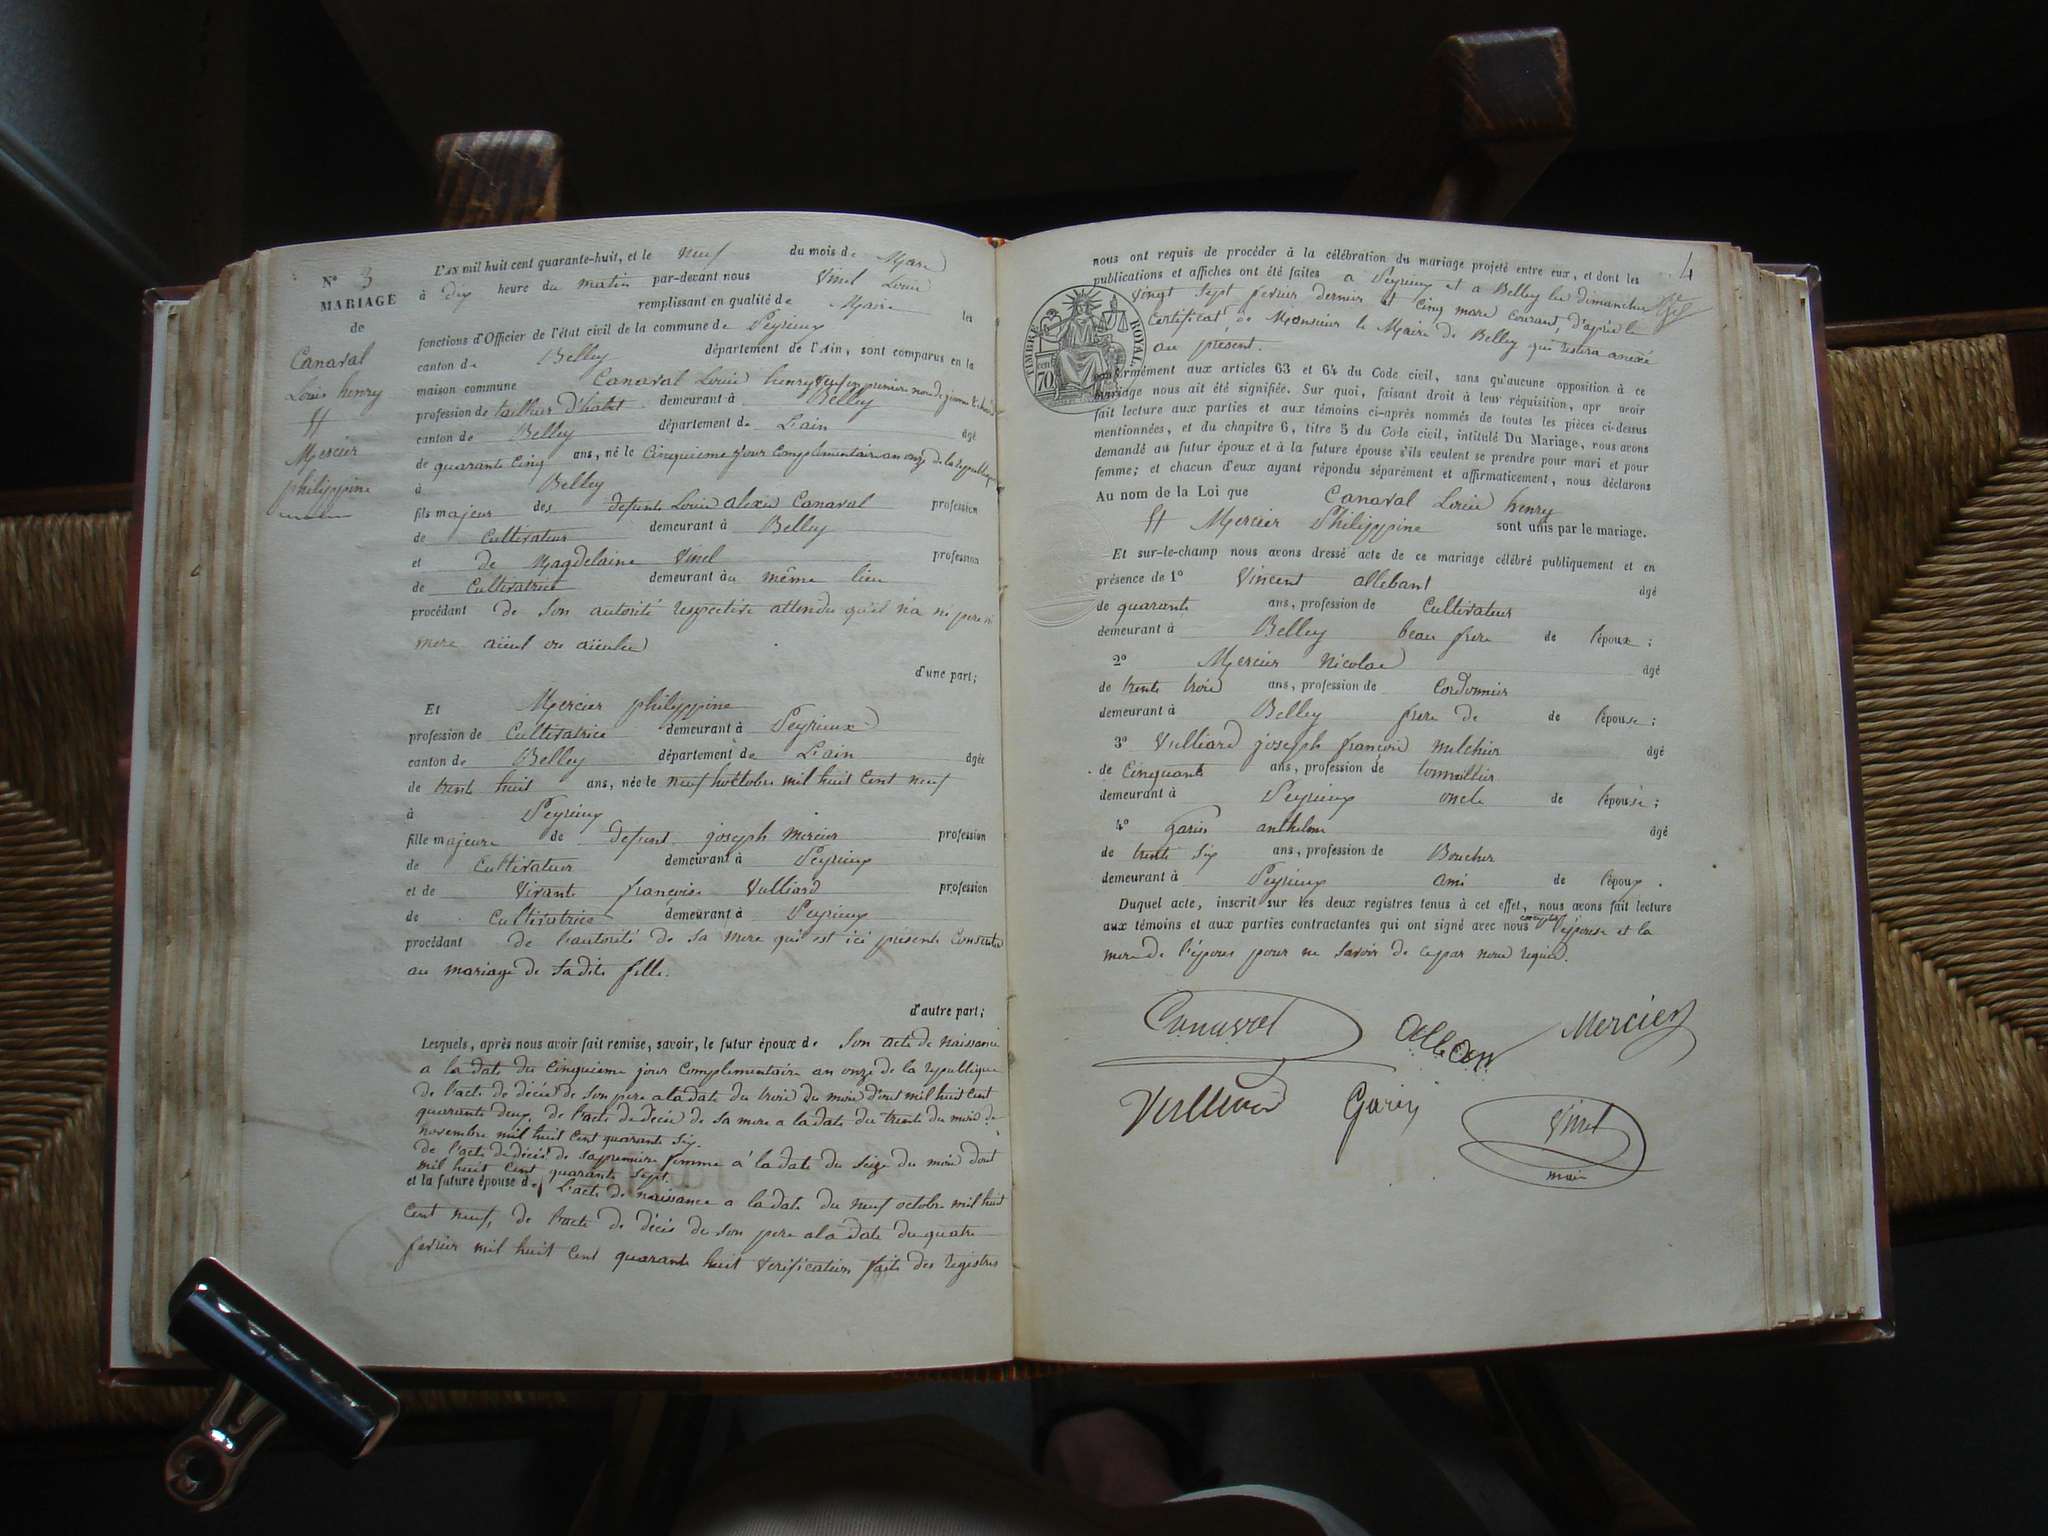 N° 3
MARIAGE
de
Canaval
Louis henry
et
Mercier
philippine
L'AN mil huit cent quarante-huit, et le neuf du mois de Mars
à dix heure du matin par-devant nous Vinel Louis
remplissant en qualité de Maire les
fonctions d'Officier de l'état civil de la commune de Peyrieux
canton de Belley département de l'Ain, sont comparus en la
maison commune Canaval Louis henry veuf en premiere noce de
profession de tailleur d'habit demeurant à Belley
canton de Belley département de L'ain âgé
de quarante Cinq ans, né le Cinquieme jour Complementaire an onze de la republique
à Belley
fils majeur des defunts Louis alexis Canaval profession
de Cultivateur demeurant à Belley
et de Magdelaine Vinel profession
de Cultivatrice demeurant au même lieu
procédant de son autorité respective attendu qu'il n'a ni pere ni
mere aïeul ou aïeules
d'une part;
Et Mercier philippine
profession de Cultivatrice demeurant à Peyrieux
canton de Belley département de L'ain âgée
de trente huit ans, née le neuf hoctobre mil huit Cent neuf
à Peyrieux
fille majeure de defunt joseph Mercier profession
de Cultivateur demeurant à Peyrieux
et de Vivante françoise Vulliard profession
de Cultivatrice demeurant à Peyrieux
procédant de l'autorité de sa mere qui est ici présente Consente
au mariage de sadite fille.
d'autre part;
Lesquels, après nous avoir fait remise, savoir, le futur époux de Son acte de naissance
a la date du Cinquieme jour Complementaire an onze de la republique
de l'acte de décès de son pere a la date du trois du mois d'out mil huit Cent
quarante deux, de l'acte de décès de sa mere a la date du trente du mois de
novembre mil huit Cent quarante six.
de l'acte de décès de sa premiere femme à la date du seize du mois dout
mil huit Cent quarante sept.
et la future épouse de L'acte de naissance a la date du neuf octobre mil huit
Cent neuf, de l'acte de décès de son pere a la date du quatre
fevrier mil huit Cent quarante huit verification faite des registres
4
nous ont requis de procéder à la célébration du mariage projeté entre eux, et dont les
publications et affiches ont été faites a Peyrieux et a Belley les dimanches
vingt sept fevrier dernier et Cinq mars Courant, d'après le
Certificat de Monsieur le Maire de Belley qui restera anexée
au present.
TIMBRE ROYAL
70
conformément aux articles 63 et 64 du Code civil, sans qu'aucune opposition à ce
mariage nous ait été signifiée. Sur quoi, faisant droit à leur réquisition, apr avoir
fait lecture aux parties et aux témoins ci-après nommés de toutes les pièces ci-dessus
mentionnées, et du chapitre 6, titre 5 du Code civil, intitulé Du Mariage, nous avons
demandé au futur époux et à la future épouse s'ils veulent se prendre pour mari et pour
femme; et chacun d'eux ayant répondu séparément et affirmativement, nous déclarons
Au nom de la Loi que Canaval Louis henry
et Mercier Philippine sont unis par le mariage.
Et sur-le-champ nous avons dressé acte de ce mariage célébré publiquement et en
présence de 1° Vincent allebant âgé
de quarante ans, profession de Cultivateur
demeurant à Belley beau frere de l'époux;
2° Mercier Nicolas âgé
de trente trois ans, profession de Cordonnier
demeurant à Belley frere de de l'épouse;
3° Vulliard joseph françois melchior âgé
de Cinquante ans, profession de tonnellier
demeurant à Peyrieux oncle de l'épouse;
4° Garin anthelme âgé
de trente six ans, profession de Boucher
demeurant à Peyrieux ami de l'époux.
Duquel acte, inscrit sur les deux registres tenus à cet effet, nous avons fait lecture
aux témoins et aux parties contractantes qui ont signé avec nous excepté l'épouse et la
mere de l'épouse pour ne savoir de ce par nous requis.
Canaval
Mercier
Vulliard
Garin
Vinel
maire